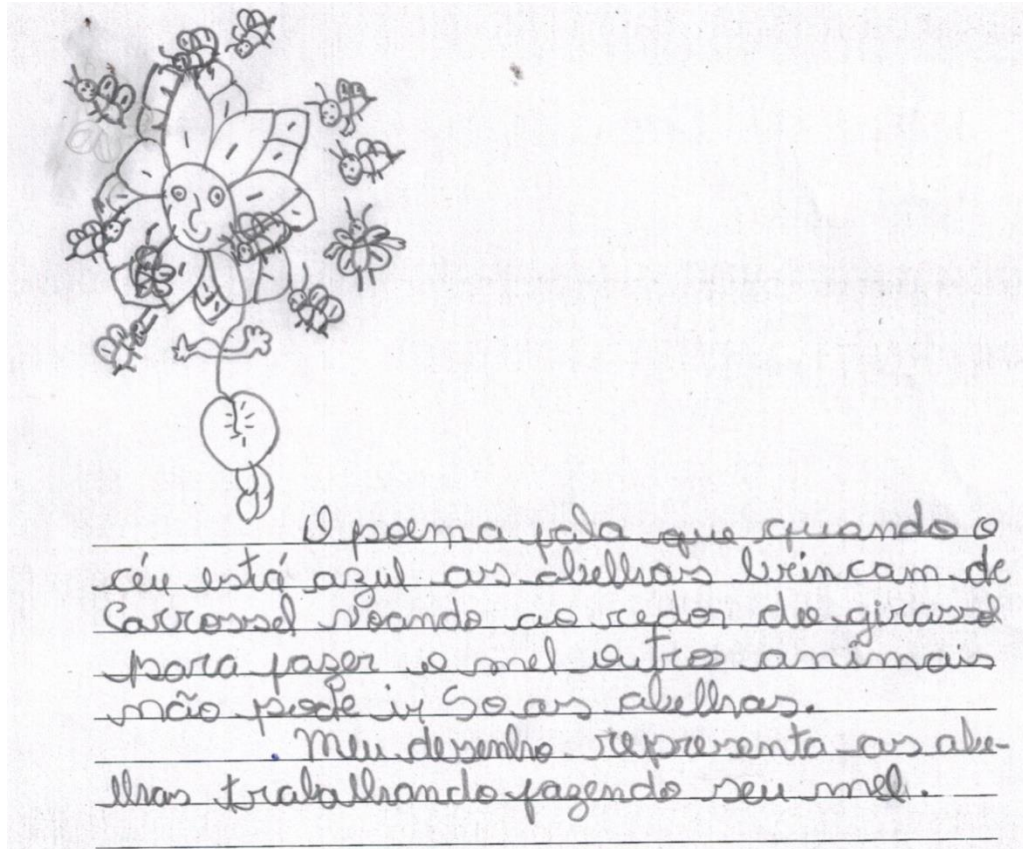 O poema fala que quando o
céu está azul as abelhas brincam de
Carrossel voando ao redor do girassol
para fazer o mel outros animais
não pode ir So as abelhas.
Meu desenho representa as abe-
lhas trabalhando fazendo seu mel.